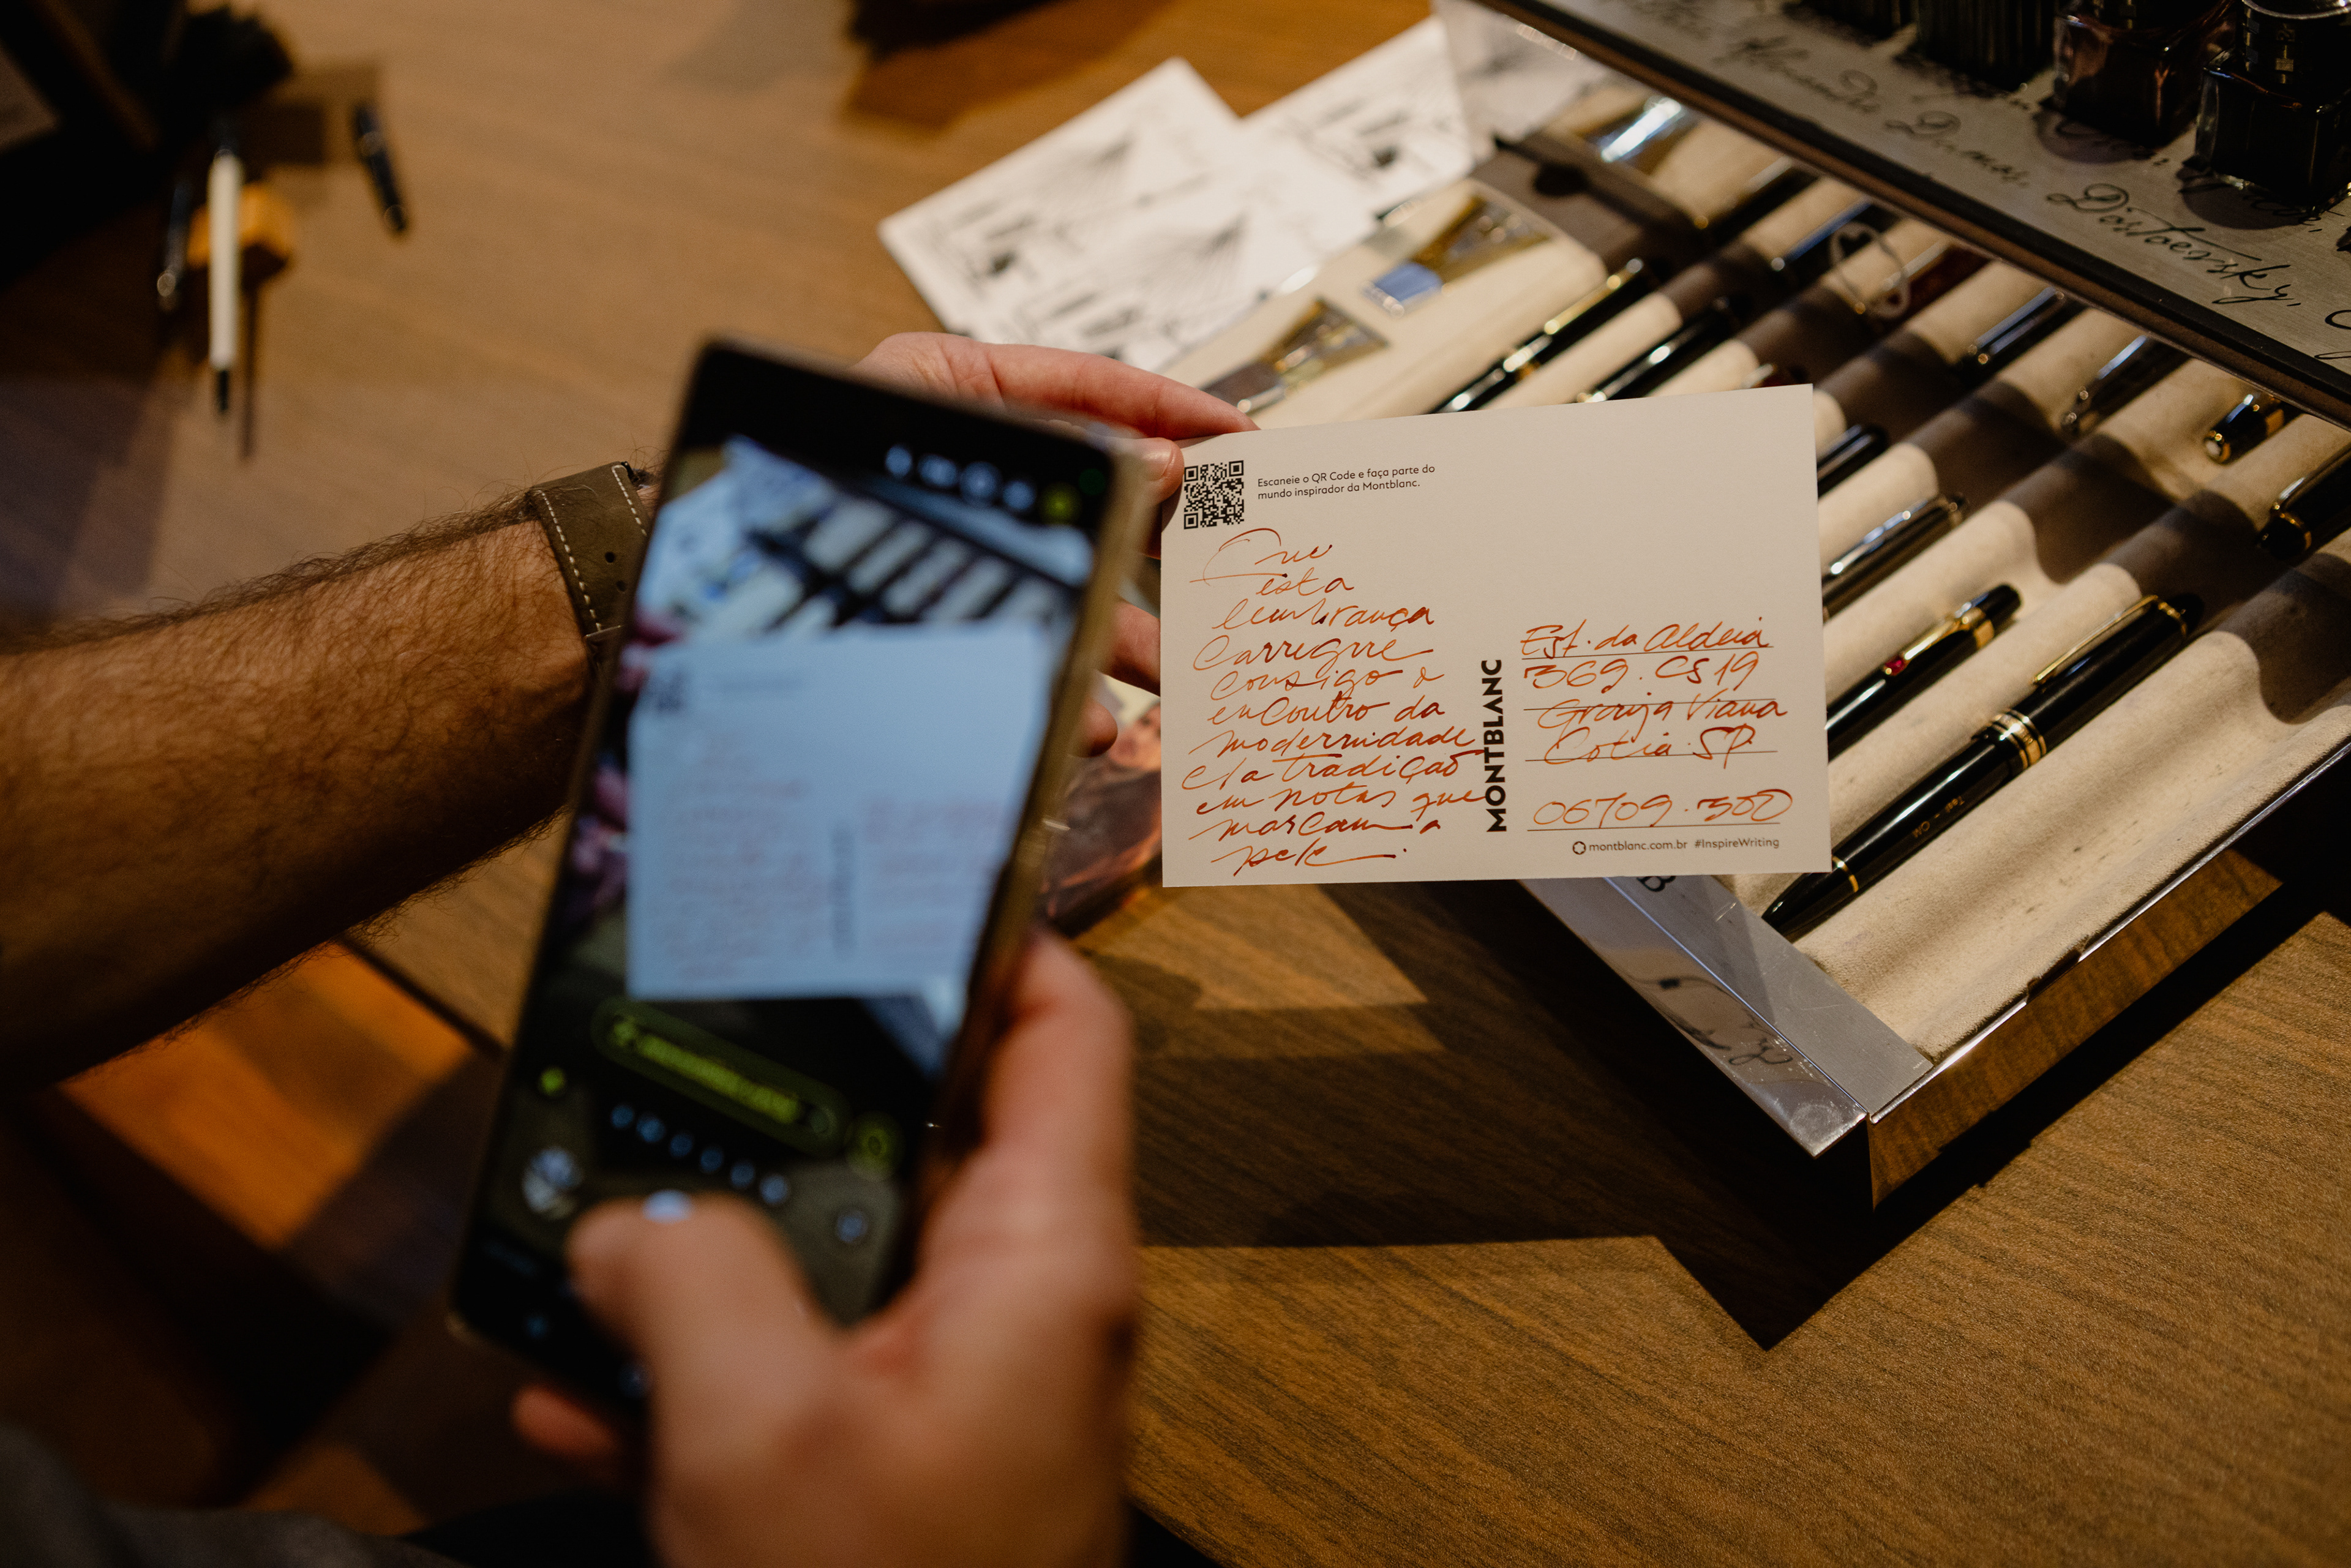 Escaneie o QR Code e faça parte do
mundo inspirador da Montblanc.
Que
esta
lembrança
carregue
consigo o
encontro da
modernidade
e a tradição
em notas que
marcam a
pele.
MONTBLANC
Est. da Aldeia
369. CS 19
Granja Viana
Cotia. SP.
06709.300
montblanc.com.br #InspireWriting
Alexandre Dumas, Dostoevsky,